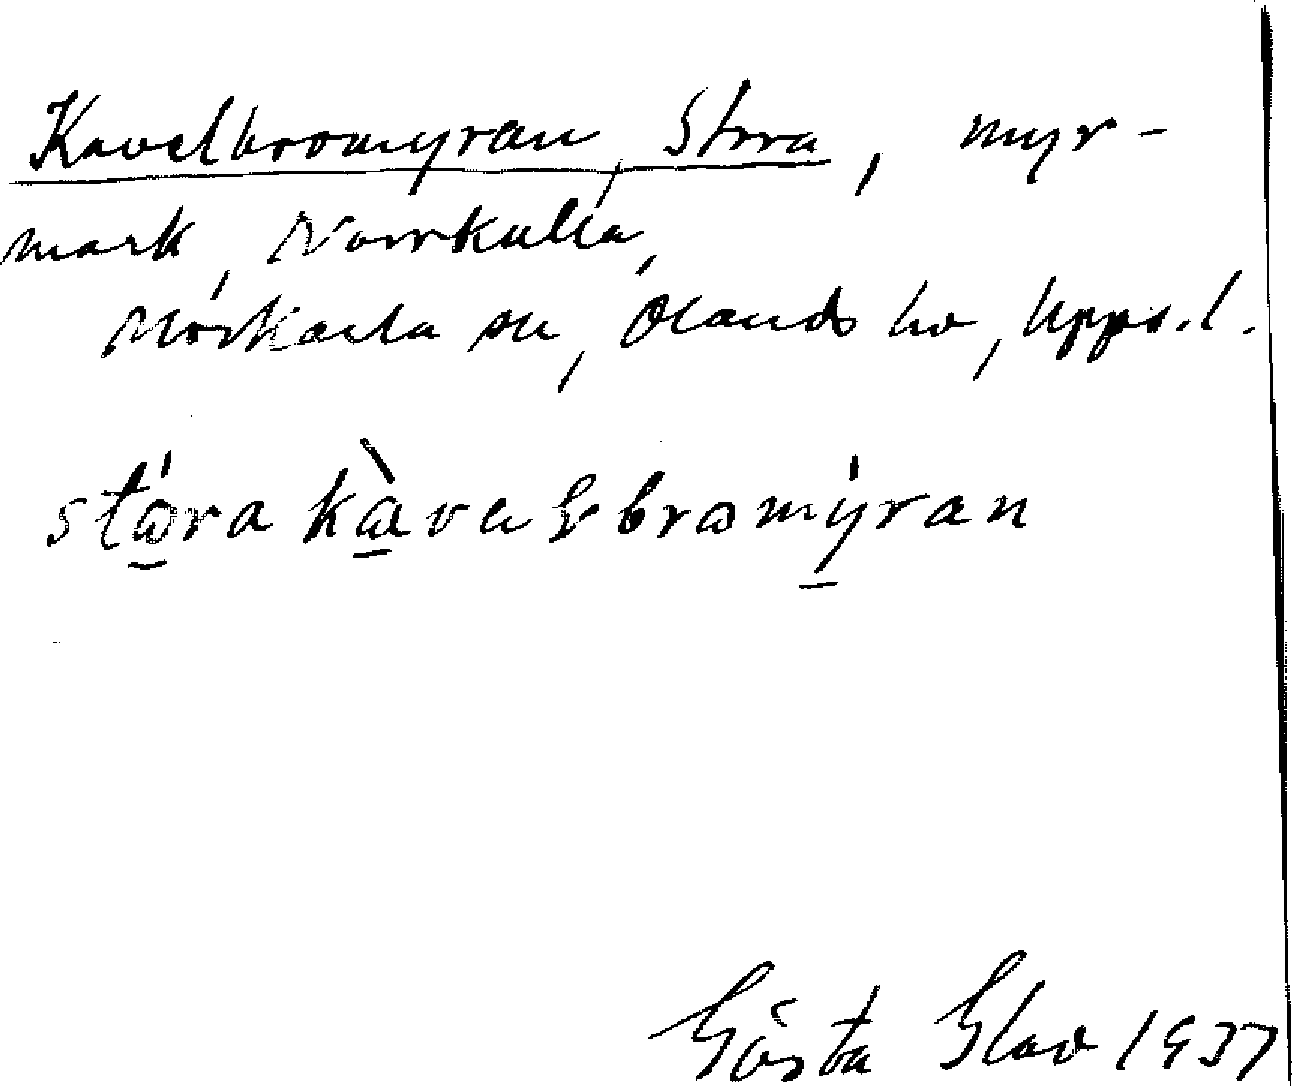 Kavelbromyran, Stora, myr-
mark, Norrkulla,
Morkarla sn, Olands hd, Upps. l.
stora kavelbromyran
Gösta Glav 1937